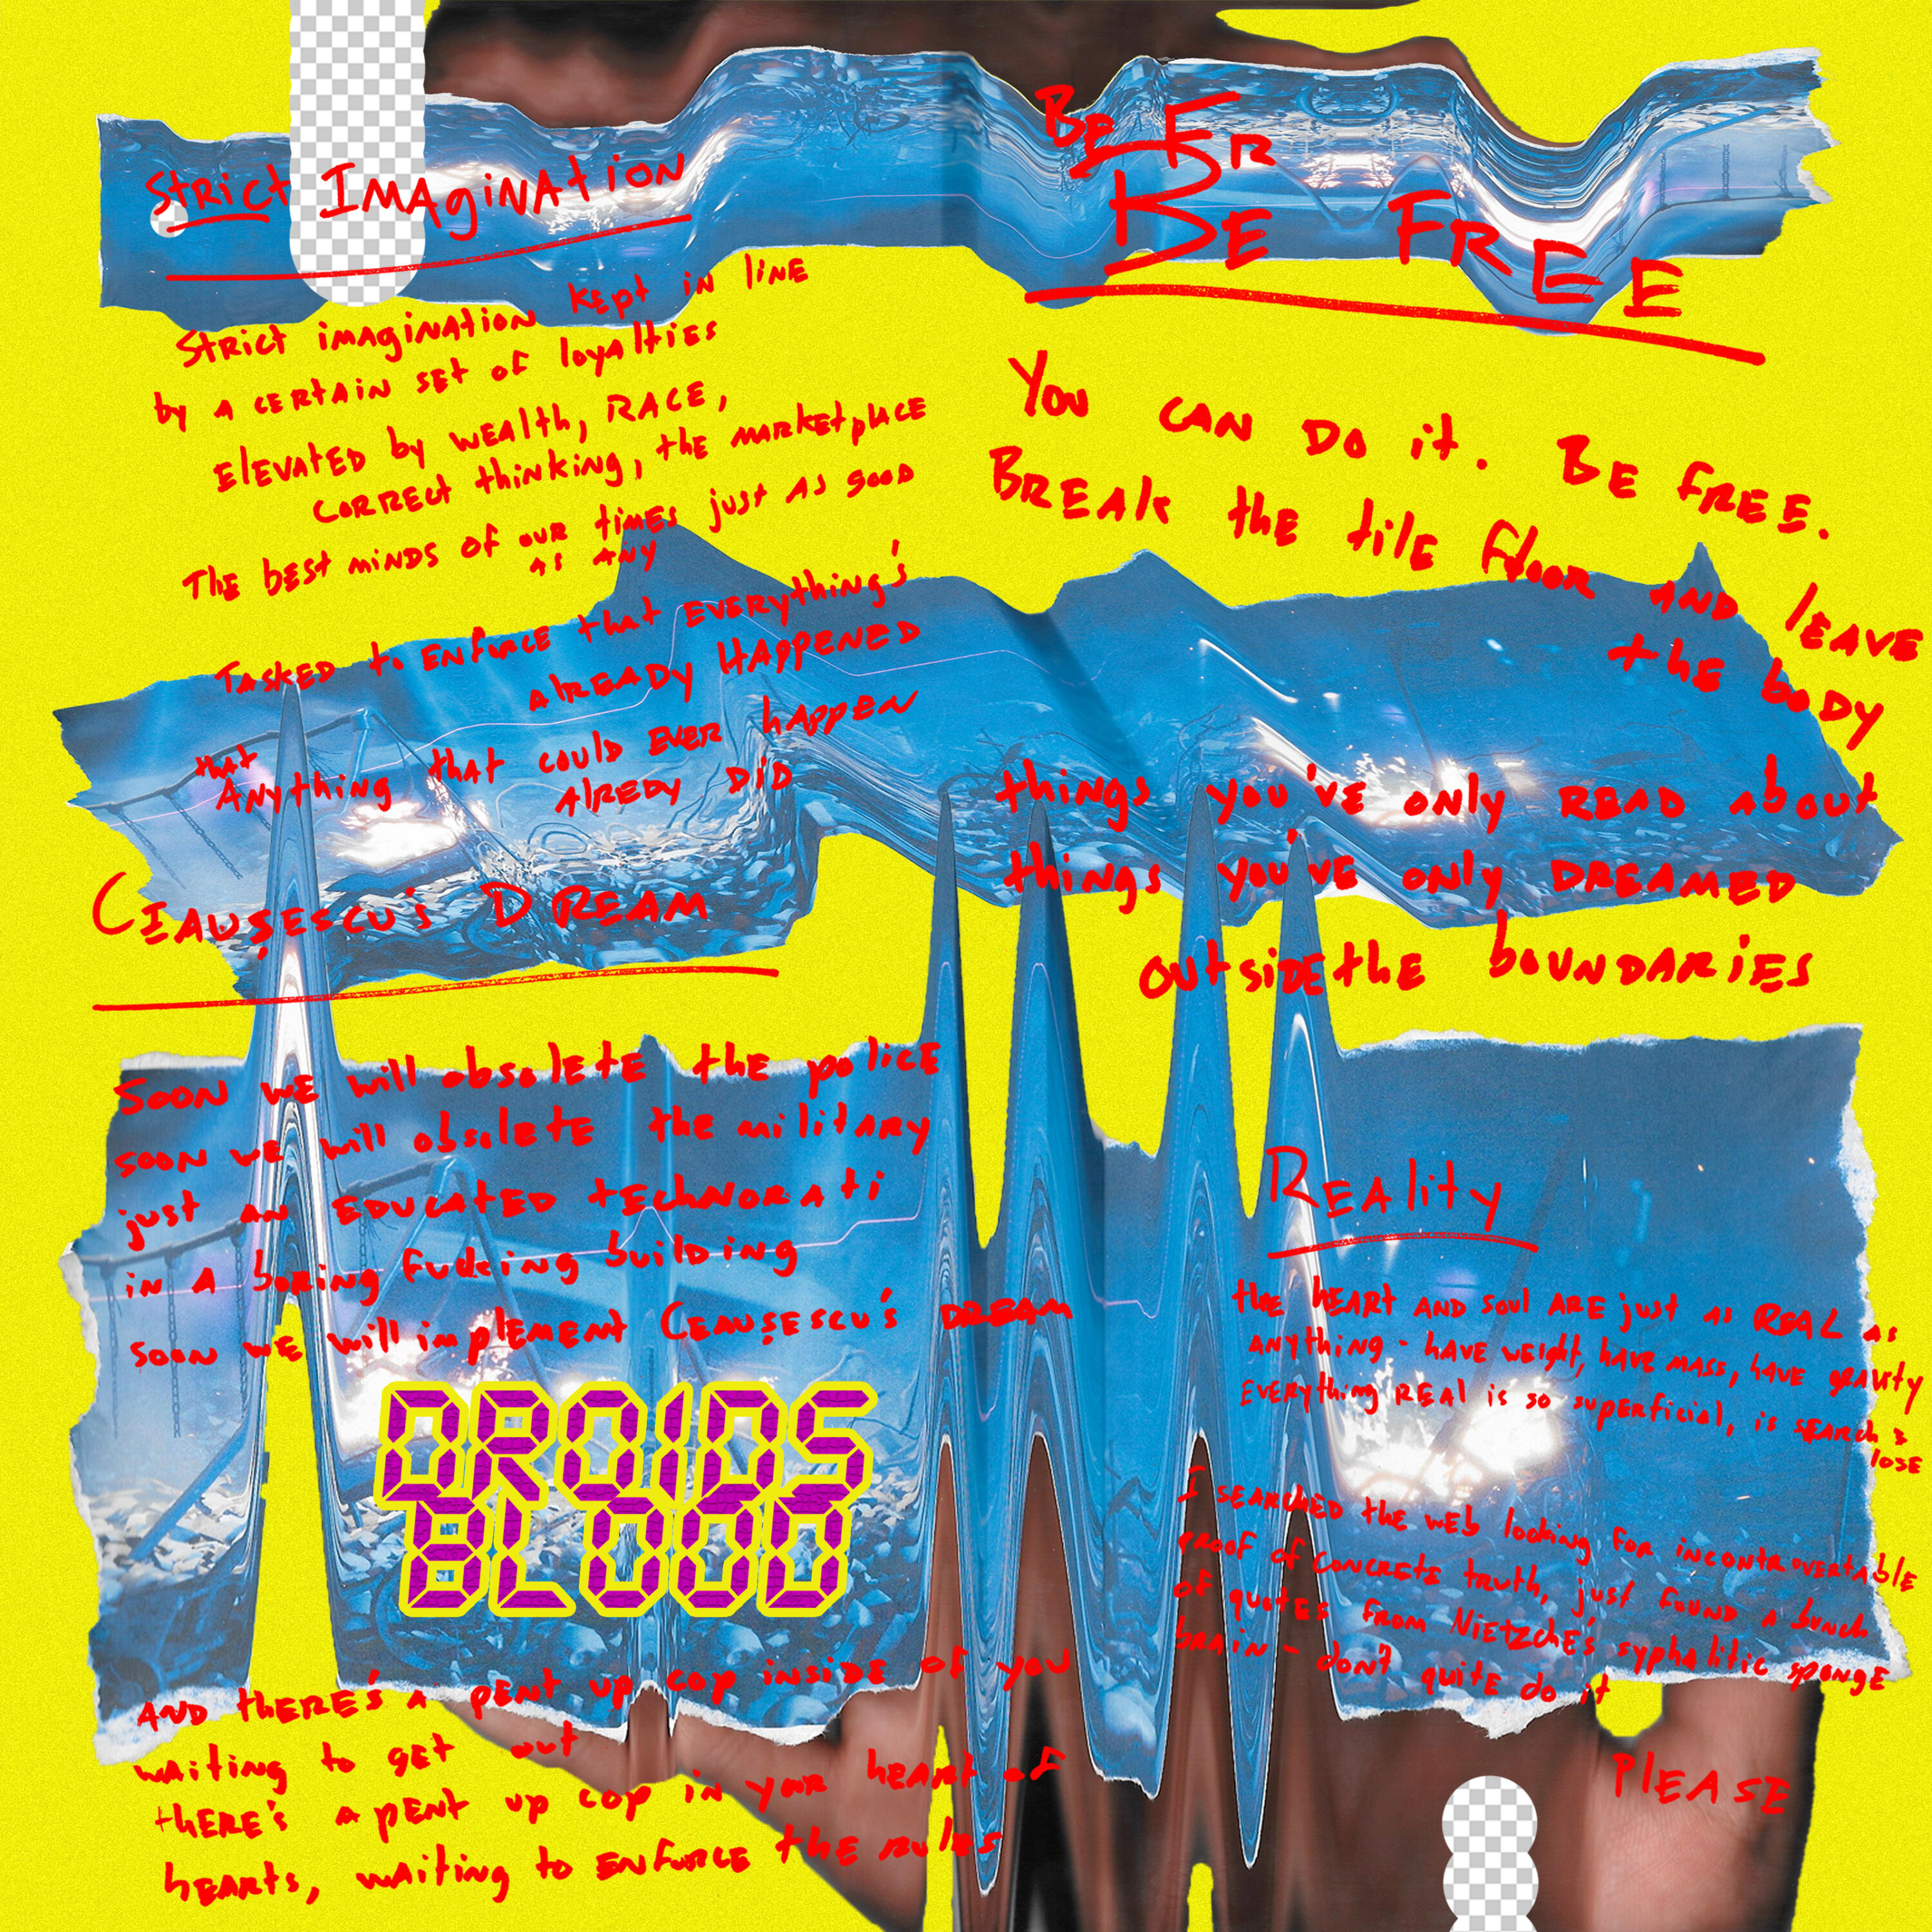 Strict Imagination
Strict imagination kept in line
by a certain set of loyalties
Elevated by wealth, race,
correct thinking, the marketplace
The best minds of our times just as good
as any
Tasked to enforce that everything's
already happened
that
Anything that could ever happen
alredy did
Ceaușescu's Dream
Soon we will obsolete the police
soon we will obsolete the military
just an educated technorati
in a boring fucking building
soon we will implement Ceaușescu's dream
DROIDS
BLOOD
and there's a pent up cop inside of you
waiting to get out
there's a pent up cop in your heart of
hearts, waiting to enforce the rules
Be Fr
Be Free
You can do it. Be free.
Break the tile floor and leave
the body
things you've only read about
things you've only dreamed
outside the boundaries
Reality
the heart and soul are just as real as
anything - have weight, have mass, have gravity
everything real is so superficial, is search &
lose
I searched the web looking for incontrovertable
proof of concrete truth, just found a bunch
of quotes from Nietzche's syphalitic sponge
brain - don't quite do it
Please